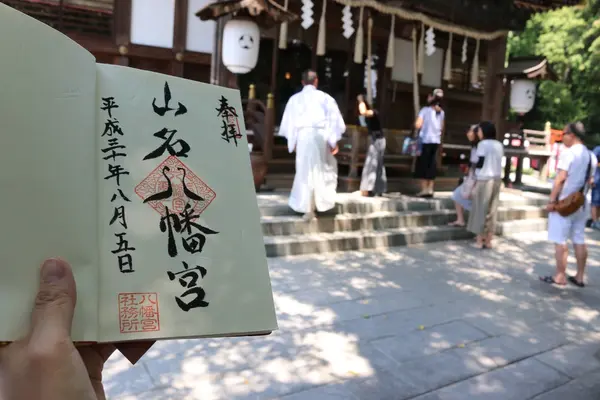 奉拝
山名八幡宮
平成三十年八月五日
八幡宮
社務所